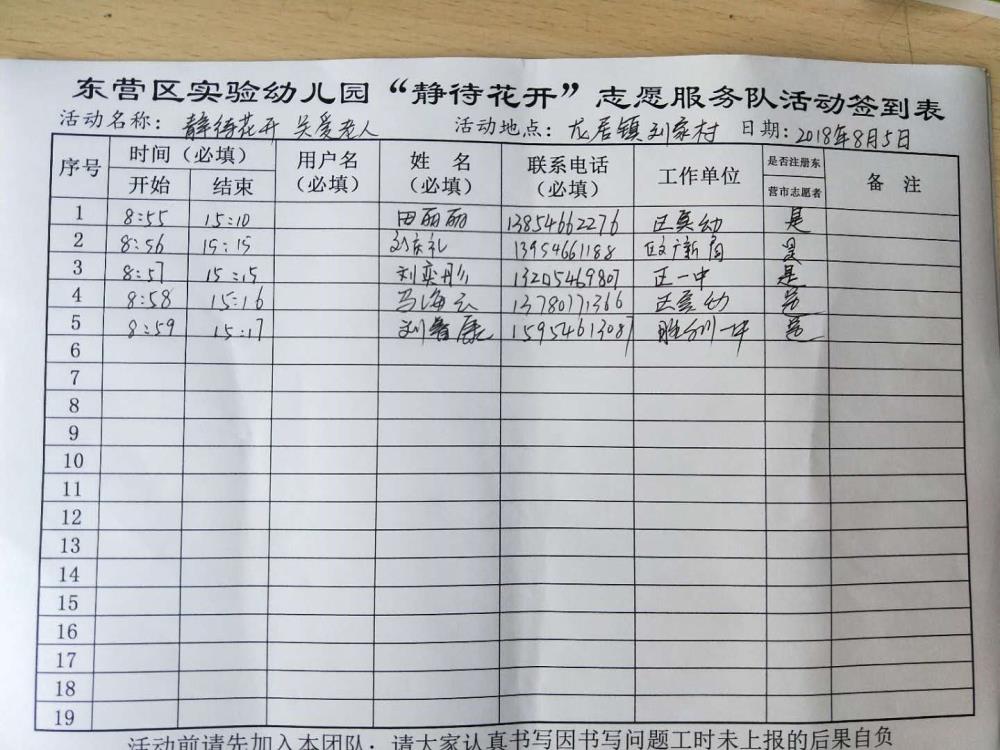 东营区实验幼儿园“静待花开”志愿服务队活动签到表
活动名称：静待花开 关爱老人 活动地点：龙居镇刘家村 日期：2018年8月5日
序号 时间（必填） 用户名（必填） 姓名（必填） 联系电话（必填） 工作单位 是否注册东营市志愿者 备注
开始 结束
1 8:55 15:10 田丽丽 13854662276 区实幼 是
2 8:56 15:15 刘庆礼 13954661188 区文广新局 是
3 8:57 15:15 刘奕彤 13205469807 区一中 是
4 8:58 15:16 马海云 13780771366 区实幼 是
5 8:59 15:17 刘鲁康 15954613087 胜利一中 是
6
7
8
9
10
11
12
13
14
15
16
17
18
19
活动前请先加入本团队；请大家认真书写因书写问题工时未上报的后果自负